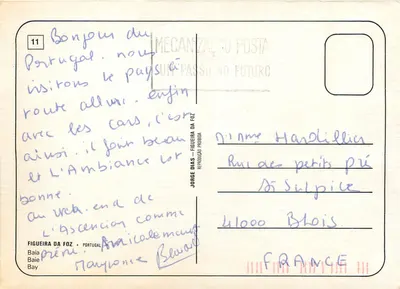 11
Bonjour du
Portugal. nous
visitons le pays à
toute allure. enfin
avec les cars, c'est
ainsi. il fait beau
et l'Ambiance est
bonne.
au week. end de
L'Ascension comme
prévu. Amicalement
FIGUEIRA DA FOZ • PORTUGAL
Baía
Baie
Bay
MECANIZAÇÃO POSTAL
UM PASSO NO FUTURO
JORGE DIAS - FIGUEIRA DA FOZ
REPRODUÇÃO PROIBIDA
Mme Hardillier
Rue des petits pré
St Sulpice
41000 Blois
FRANCE